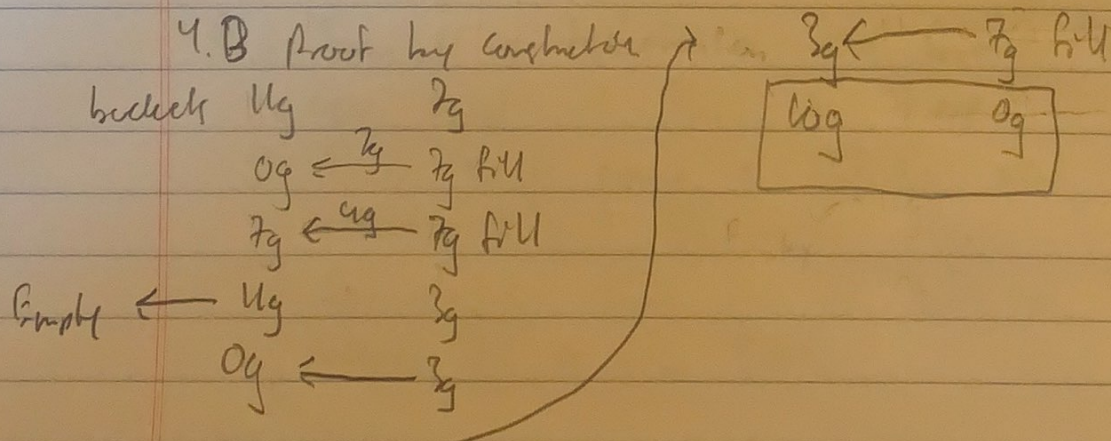 4.B Proof by construction
buckets 11g 7g
0g ← 7g 7g fill
7g ← 4g 7g fill
Empty ← 11g 3g
0g ← 3g
3g ← 7g fill
10g 0g